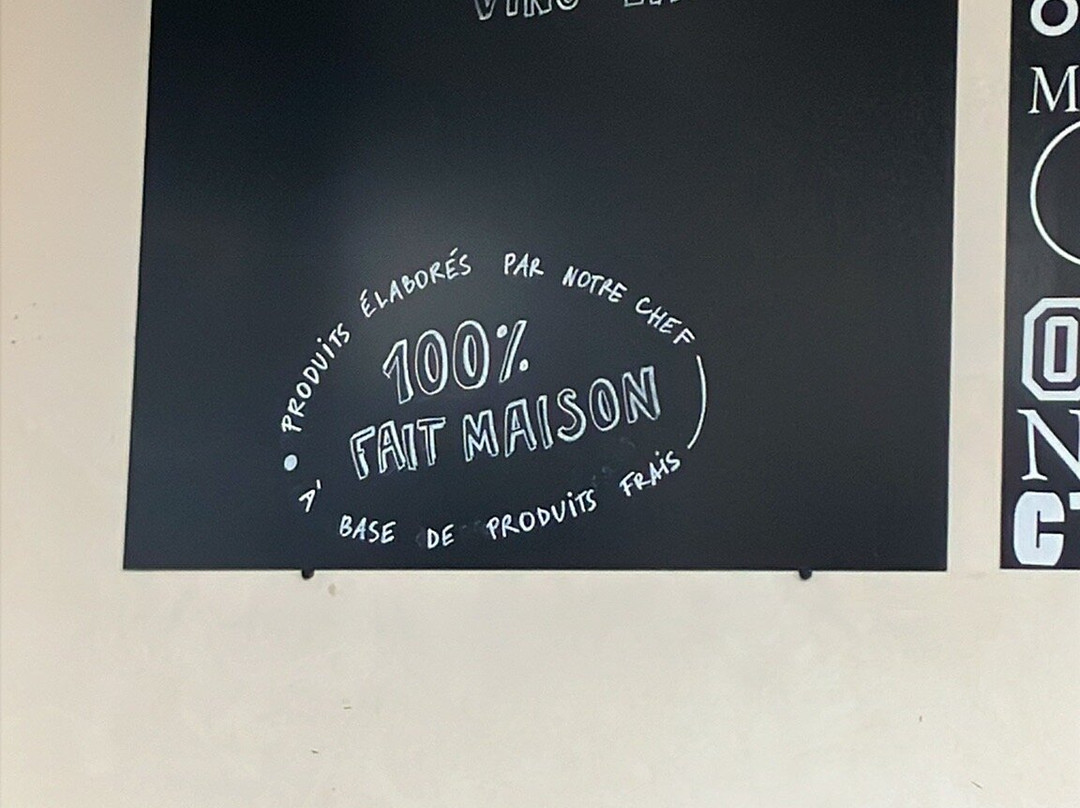 PRODUITS ÉLABORÉS PAR NOTRE CHEF
100%
FAIT MAISON
À BASE DE PRODUITS FRAIS
O
M
O
N